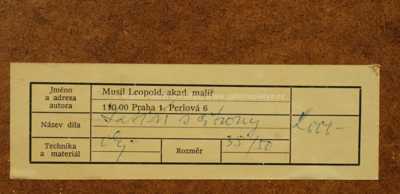 Jméno
a adresa
autora
Musil Leopold, akad. malíř
110 00 Praha 1, Perlová 6
Název díla
s citrony
2000-
Technika
a materiál
Rozměr
35/50